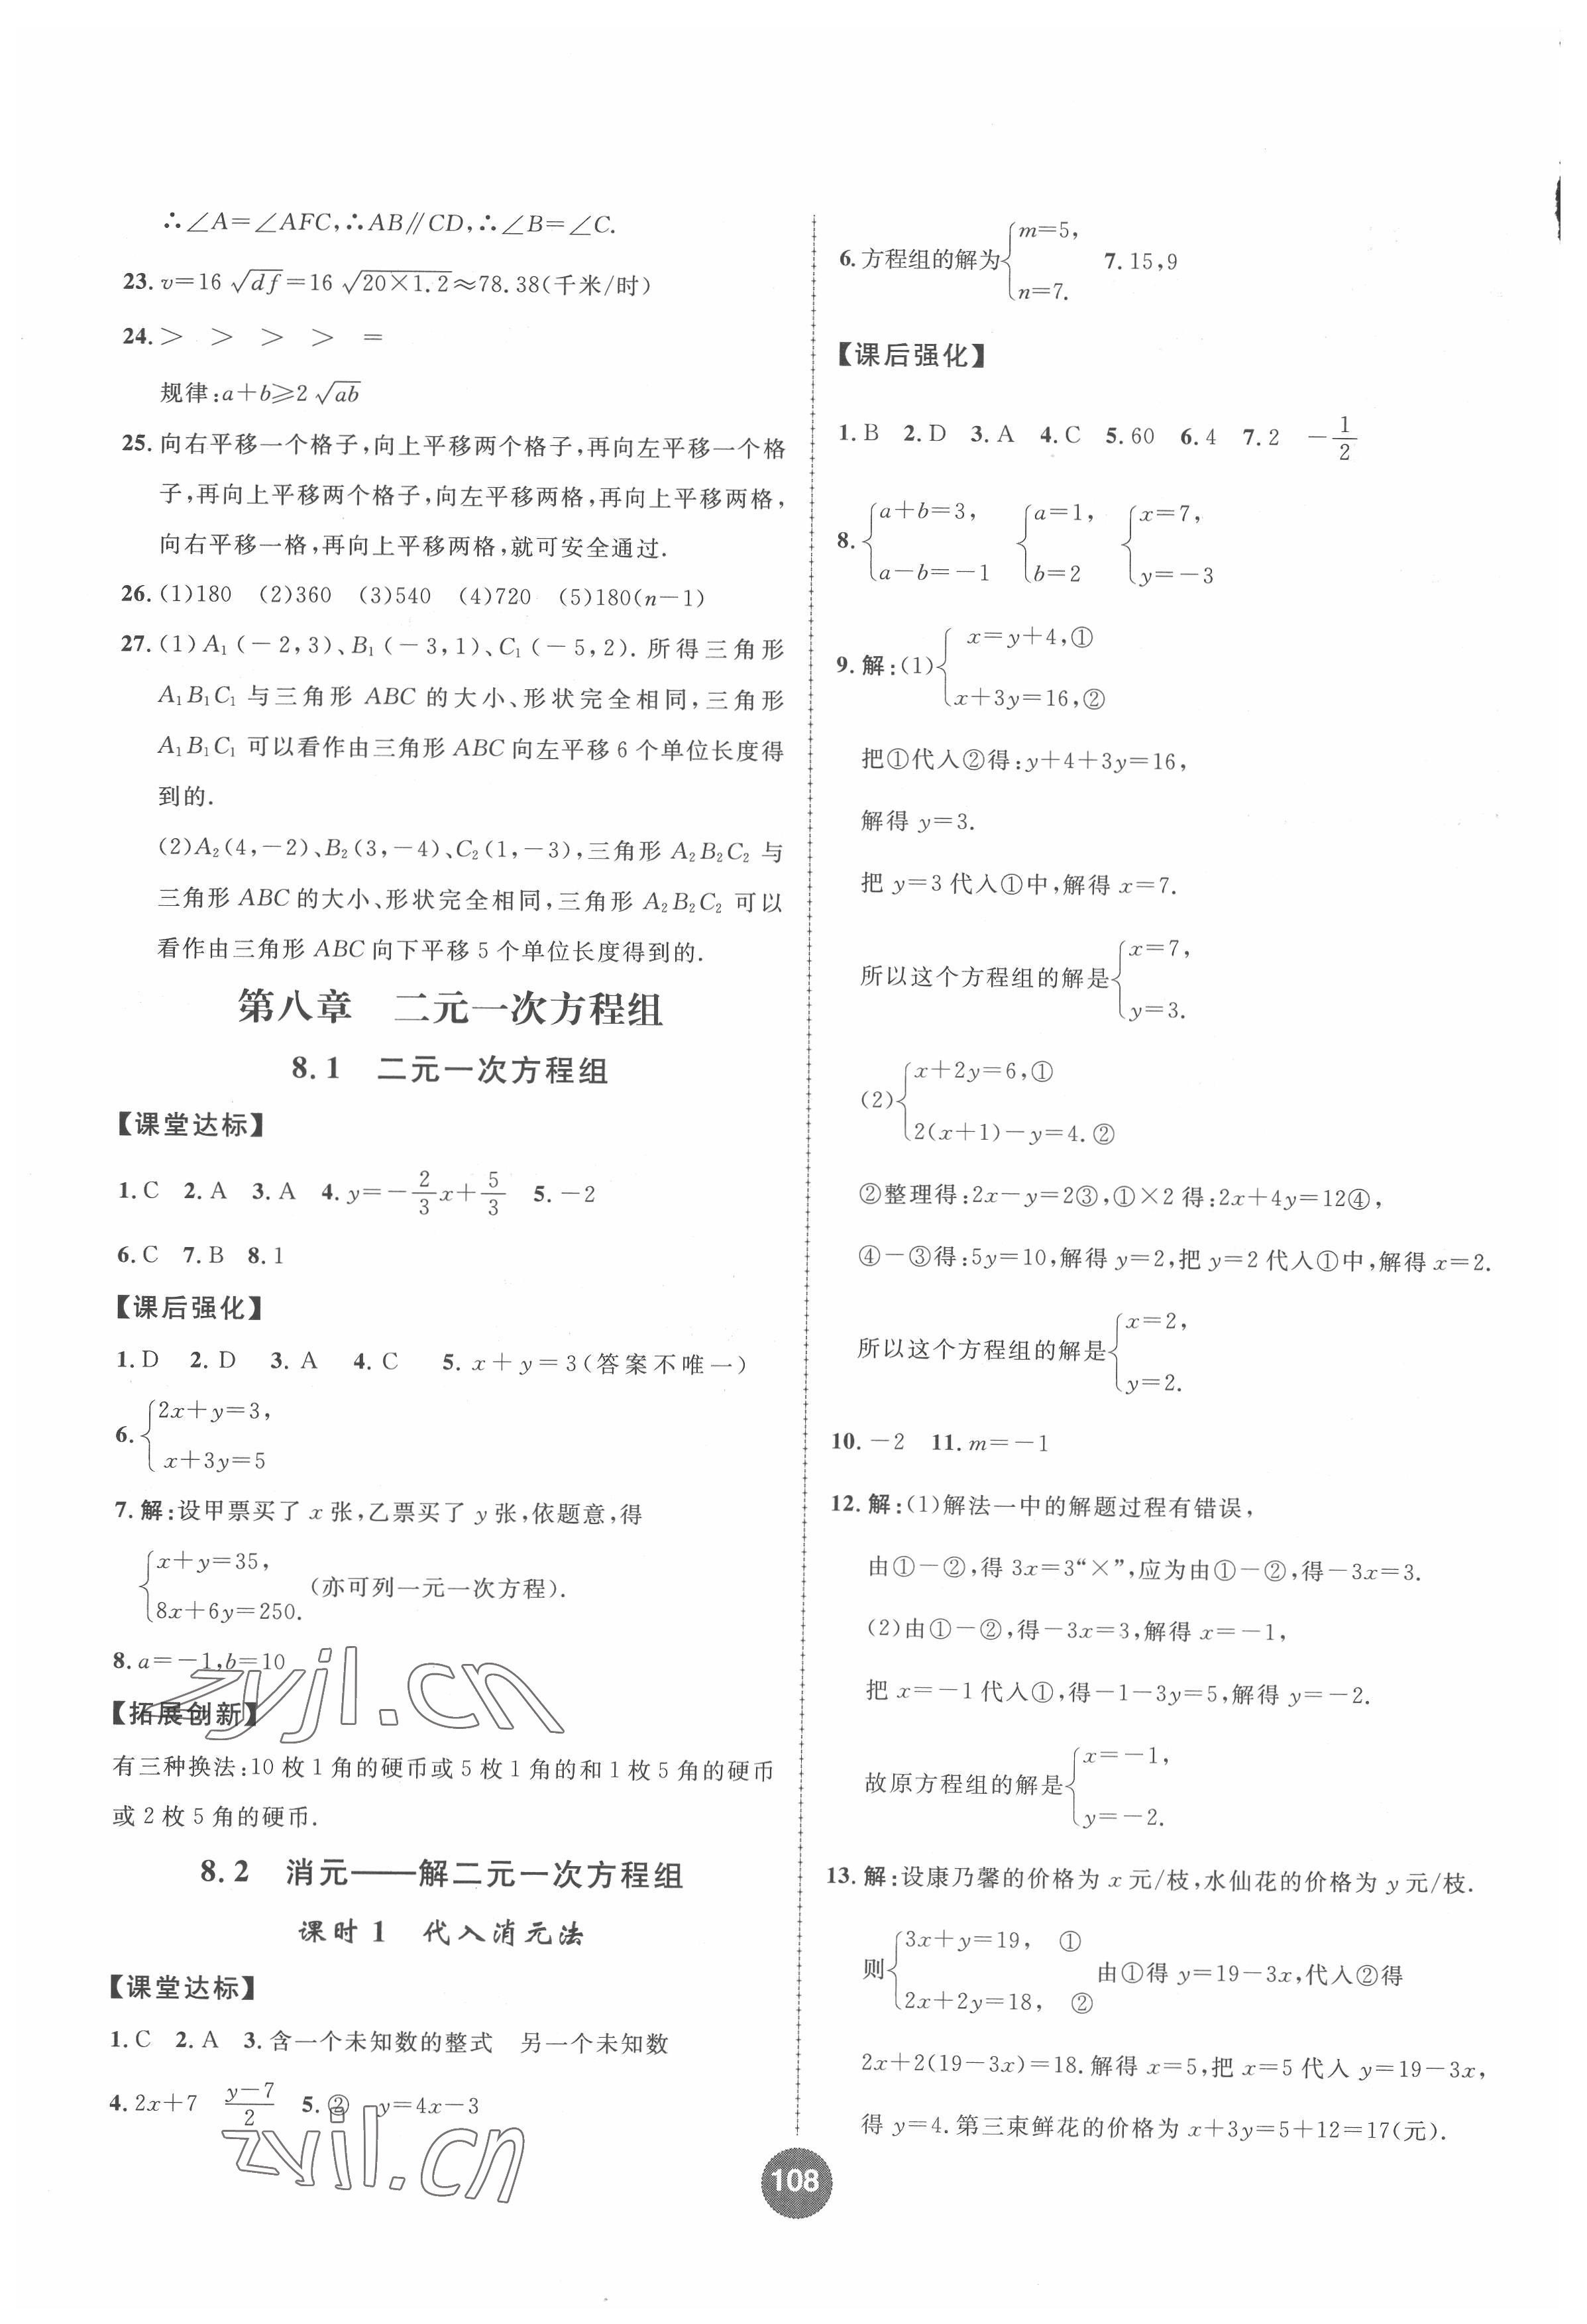 ∴∠A=∠AFC,∴AB∥CD,∴∠B=∠C.
23. v=16√df=16√20×1.2≈78.38(千米/时)
24. > > > > =
规律:a+b≥2√ab
25. 向右平移一个格子,向上平移两个格子,再向左平移一个格
子,再向上平移两个格子,向左平移两格,再向上平移两格,
向右平移一格,再向上平移两格,就可安全通过.
26. (1)180 (2)360 (3)540 (4)720 (5)180(n-1)
27. (1)A₁(-2,3)、B₁(-3,1)、C₁(-5,2). 所得三角形
A₁B₁C₁ 与三角形 ABC 的大小、形状完全相同,三角形
A₁B₁C₁ 可以看作由三角形 ABC 向左平移 6 个单位长度得
到的.
(2)A₂(4,-2)、B₂(3,-4)、C₂(1,-3),三角形 A₂B₂C₂ 与
三角形 ABC 的大小、形状完全相同,三角形 A₂B₂C₂ 可以
看作由三角形 ABC 向下平移 5 个单位长度得到的.
第八章 二元一次方程组
8.1 二元一次方程组
【课堂达标】
1. C 2. A 3. A 4. y=-2/3x+5/3 5. -2
6. C 7. B 8. 1
【课后强化】
1. D 2. D 3. A 4. C 5. x+y=3(答案不唯一)
6. {2x+y=3,
x+3y=5
7. 解:设甲票买了 x 张,乙票买了 y 张,依题意,得
{x+y=35,
8x+6y=250. (亦可列一元一次方程).
8. a=-1,b=10
【拓展创新】
有三种换法:10 枚 1 角的硬币或 5 枚 1 角的和 1 枚 5 角的硬币
或 2 枚 5 角的硬币.
8.2 消元——解二元一次方程组
课时 1 代入消元法
【课堂达标】
1. C 2. A 3. 含一个未知数的整式 另一个未知数
4. 2x+7 (y-7)/2 5. ② y=4x-3
zyjl.cn
zyjl.cn
6. 方程组的解为{m=5,
n=7. 7. 15,9
【课后强化】
1. B 2. D 3. A 4. C 5. 60 6. 4 7. 2 -1/2
8. {a+b=3, {a=1, {x=7,
a-b=-1 b=2 y=-3
9. 解:(1){x=y+4,①
x+3y=16,②
把①代入②得:y+4+3y=16,
解得 y=3.
把 y=3 代入①中,解得 x=7.
所以这个方程组的解是{x=7,
y=3.
(2){x+2y=6,①
2(x+1)-y=4.②
②整理得:2x-y=2③,①×2 得:2x+4y=12④,
④-③得:5y=10,解得 y=2,把 y=2 代入①中,解得 x=2.
所以这个方程组的解是{x=2,
y=2.
10. -2 11. m=-1
12. 解:(1)解法一中的解题过程有错误,
由①-②,得 3x=3“×”,应为由①-②,得-3x=3.
(2)由①-②,得-3x=3,解得 x=-1,
把 x=-1 代入①,得-1-3y=5,解得 y=-2.
故原方程组的解是{x=-1,
y=-2.
13. 解:设康乃馨的价格为 x 元/枝,水仙花的价格为 y 元/枝.
则{3x+y=19, ①
2x+2y=18, ② 由①得 y=19-3x,代入②得
2x+2(19-3x)=18. 解得 x=5,把 x=5 代入 y=19-3x,
得 y=4. 第三束鲜花的价格为 x+3y=5+12=17(元).
108